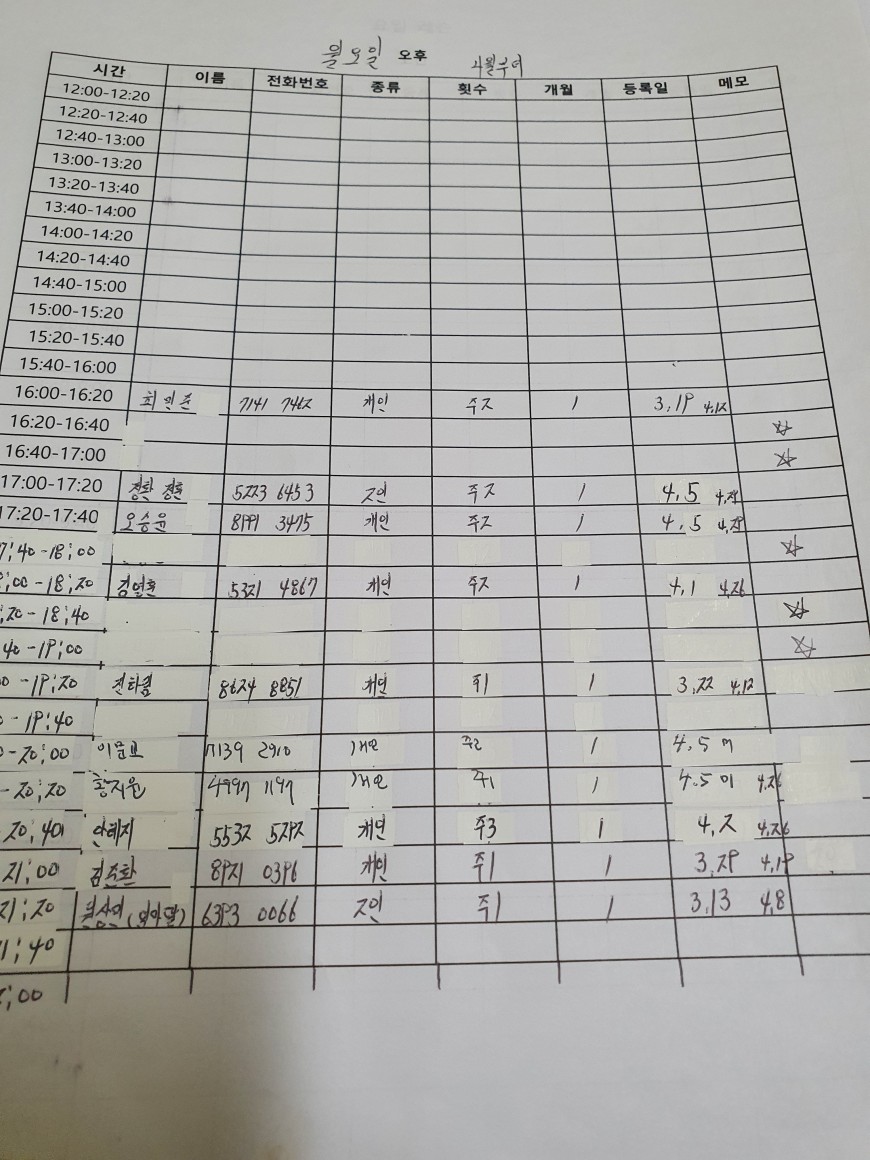 월요일 오후 4월부터
시간 이름 전화번호 종류 횟수 개월 등록일 메모
12:00-12:20
12:20-12:40
12:40-13:00
13:00-13:20
13:20-13:40
13:40-14:00
14:00-14:20
14:20-14:40
14:40-15:00
15:00-15:20
15:20-15:40
15:40-16:00
16:00-16:20 최민준 7141 7462 개인 주2 1 3.19 4.12
16:20-16:40 ☆
16:40-17:00 ☆
17:00-17:20 5223 6453 2인 주2 1 4.5 4.29
17:20-17:40 오승윤 8991 3475 개인 주2 1 4.5 4.29
7:40-18:00 ☆
:00-18:20 5321 4867 개인 주2 1 4.1 4.26
:20-18:40 ☆
40-19:00 ☆
0-19:20 8624 8851 개인 주1 1 3.22 4.12
0-19:40
0-20:00 이문교 7139 2910 개인 주2 1 4.5
-20:20 홍지원 4997 1197 개인 주1 1 4.5 4.26
20:40 안예지 5532 5292 개인 주3 1 4.2 4.26
21:00 8921 0396 개인 주1 1 3.29 4.19
21:20 6393 0066 2인 주1 1 3.13 4.8
1:40
:00